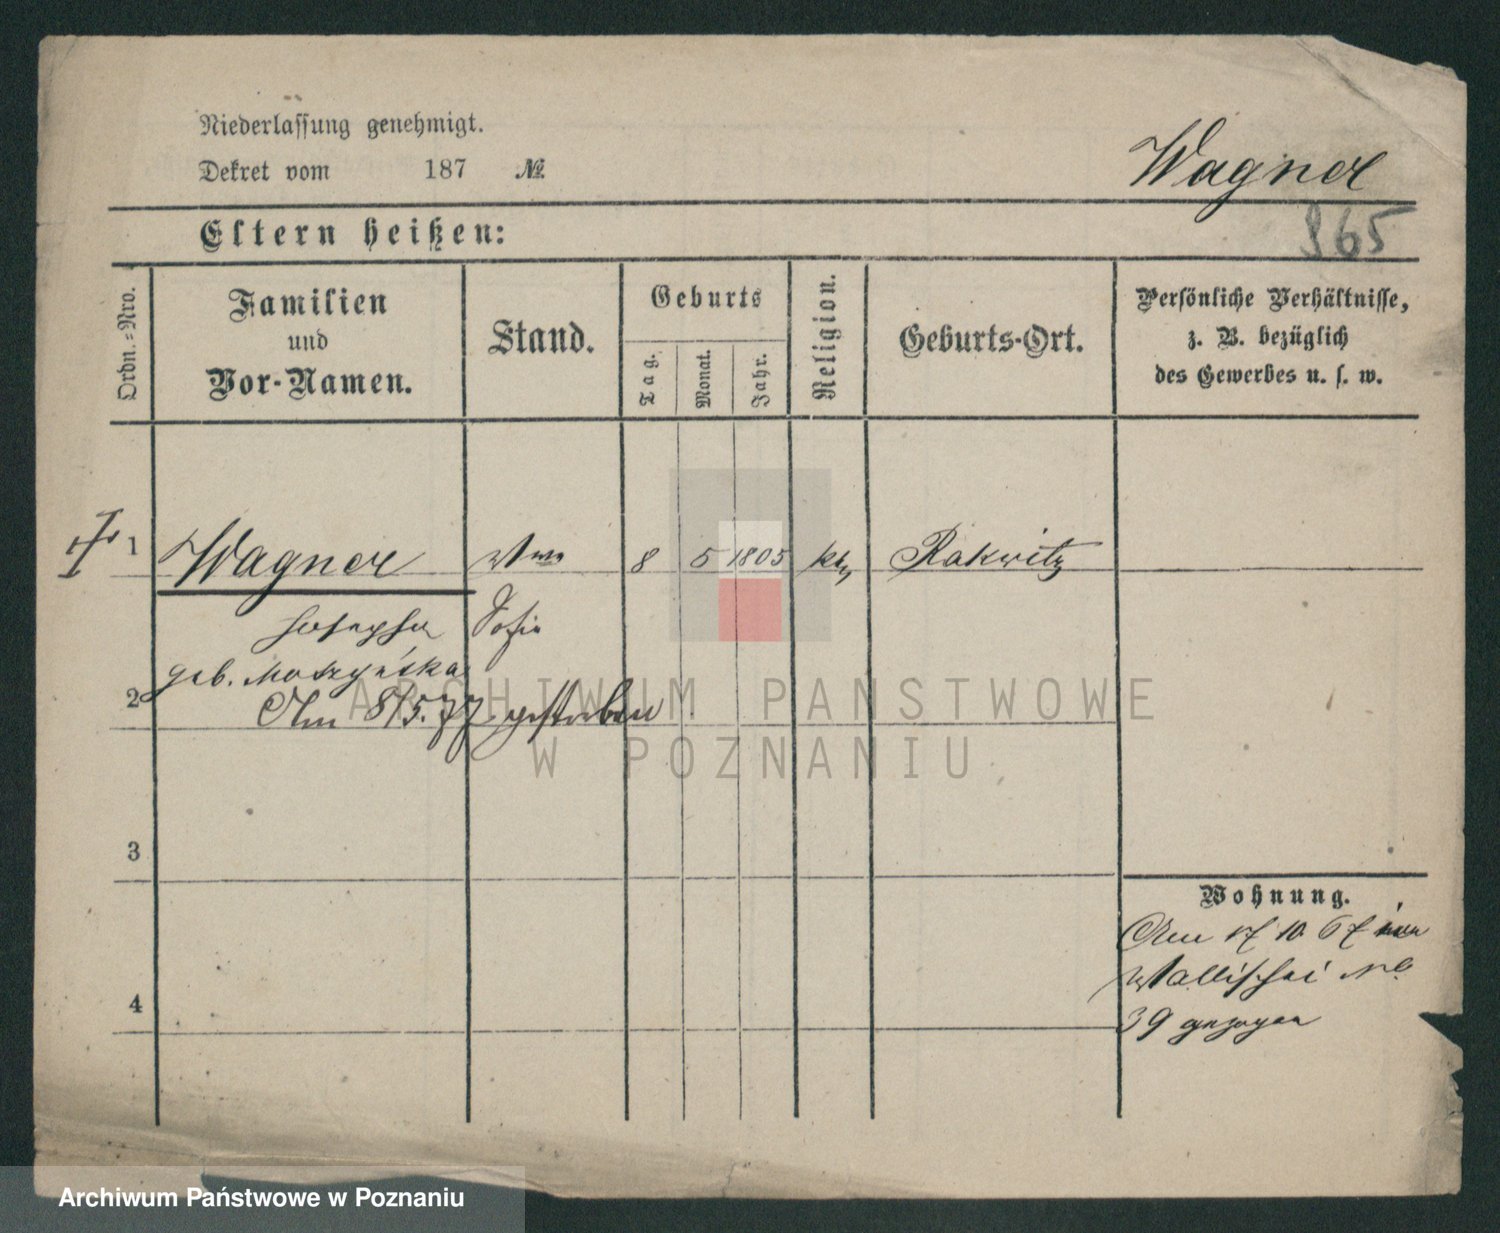 Niederlassung genehmigt.
Dekret vom 187 №
Wagner
Eltern heißen:
965
Ordn.=Nro.
Familien
und
Vor-Namen.
Stand.
Geburts
Tag.
Monat.
Jahr.
Religion.
Geburts-Ort.
Persönliche Verhältnisse,
z. B. bezüglich
des Gewerbes u. s. w.
1 Wagner Wwe 8 5 1805 kth Rakwitz
Josepha Sofie
geb. Moszyńska
2 Am 8/5.77 gestorben
ARCHIWUM PAŃSTWOWE
W POZNANIU
3
Wohnung.
Am 17 10 67 von
Wallischei No
39 gezogen
4
Archiwum Państwowe w Poznaniu